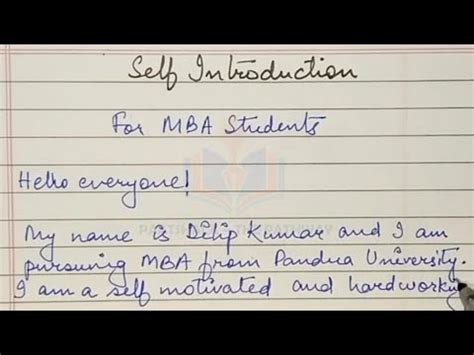 Self Introduction
For MBA Students
Hello everyone!
My name is Dilip Kumar and I am
pursuing MBA from Pandua University.
I am a self motivated and hardworki